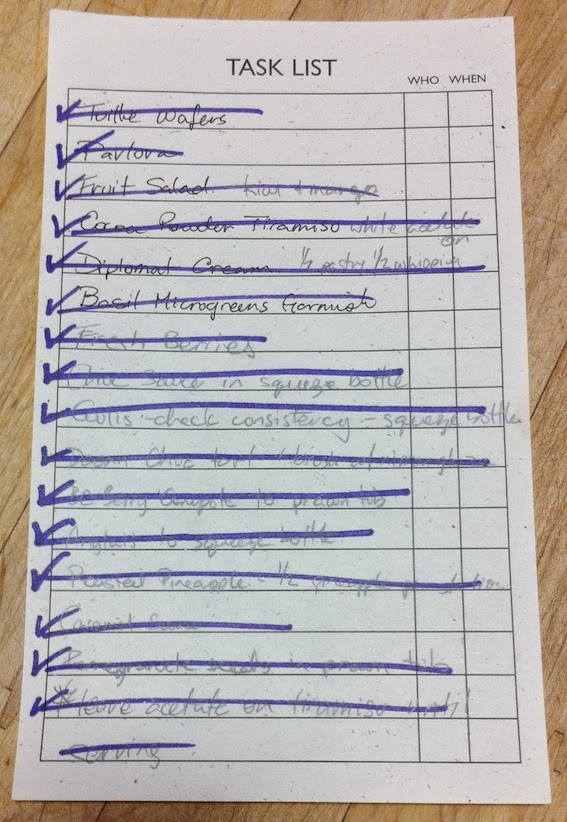 TASK LIST
WHO WHEN
Tuille Wafers
Pavlova
Fruit Salad kiwi + mango
Cocoa Powder Tiramisu white acetate on
Diplomat Cream 1/2 pastry 1/2 whippin
Basil Microgreens Garnish
Fresh Berries
Choc Sauce in squeeze bottle
Coulis - check consistency - squeeze bottle
Choc tart
BC Berry Compote to prawn tub
Anglais to squeeze bottle
Roasted Pineapple - 1/2 pineapple
Caramel Sauce
Pomegranate seeds in prawn tub
* Leave acetate on tiramisu until
serving